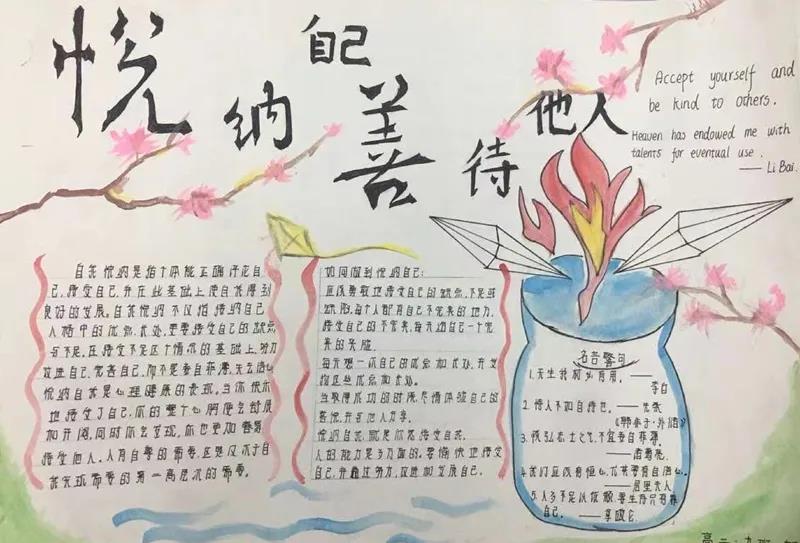 悦纳自己
善待他人
Accept yourself and
be kind to others.
Heaven has endowed me with
talents for eventual use.
—— Li Bai.
自我悦纳是指个体能正确评论自
己,接受自己,并在此基础上使自我得到
良好的发展。自我悦纳不仅指接纳自己
人格中的优点,长处,更要接受自己的缺点
与不足,在接受不足这个情况的基础上努力
改进自己,完善自己,而不是妄自菲薄,失去信心
悦纳自我是心理健康的表现。当你很大
地接受了自己,你的整个心胸便会舒展
加开阔,同时你会发现,你也更加容易
接受他人。人有自尊的需要,这是仅次于自
我实现需要的第一高层次的需要。
如何做到悦纳自己:
应该勇敢地接受自己的缺点,不足或
缺陷,每个人都有自己不完美的地方,
接受自己的不完美,每天给自己一个完
美的笑脸
每天想一点自己的优点和长处,并发
挥这些优点和长处。
当取得成功的时候,尽情体验自己的
喜悦,并与他人分享。
悦纳自我,就是你要接受自我。
人的能力是多方面的,要愉快地接受
自己,并通过努力,改进和发展自己。
名言警句
1.天生我材必有用。——
李白
2.恃人不如自恃也。—— 先秦
《韩非子·外储》
3.恢弘志士之气,不宜妄自菲薄。
——诸葛亮
4.我们应该有恒心,尤其要有自信心。
——居里夫人
5.人多不足以依赖,要生存只有靠
自己。——拿破仑